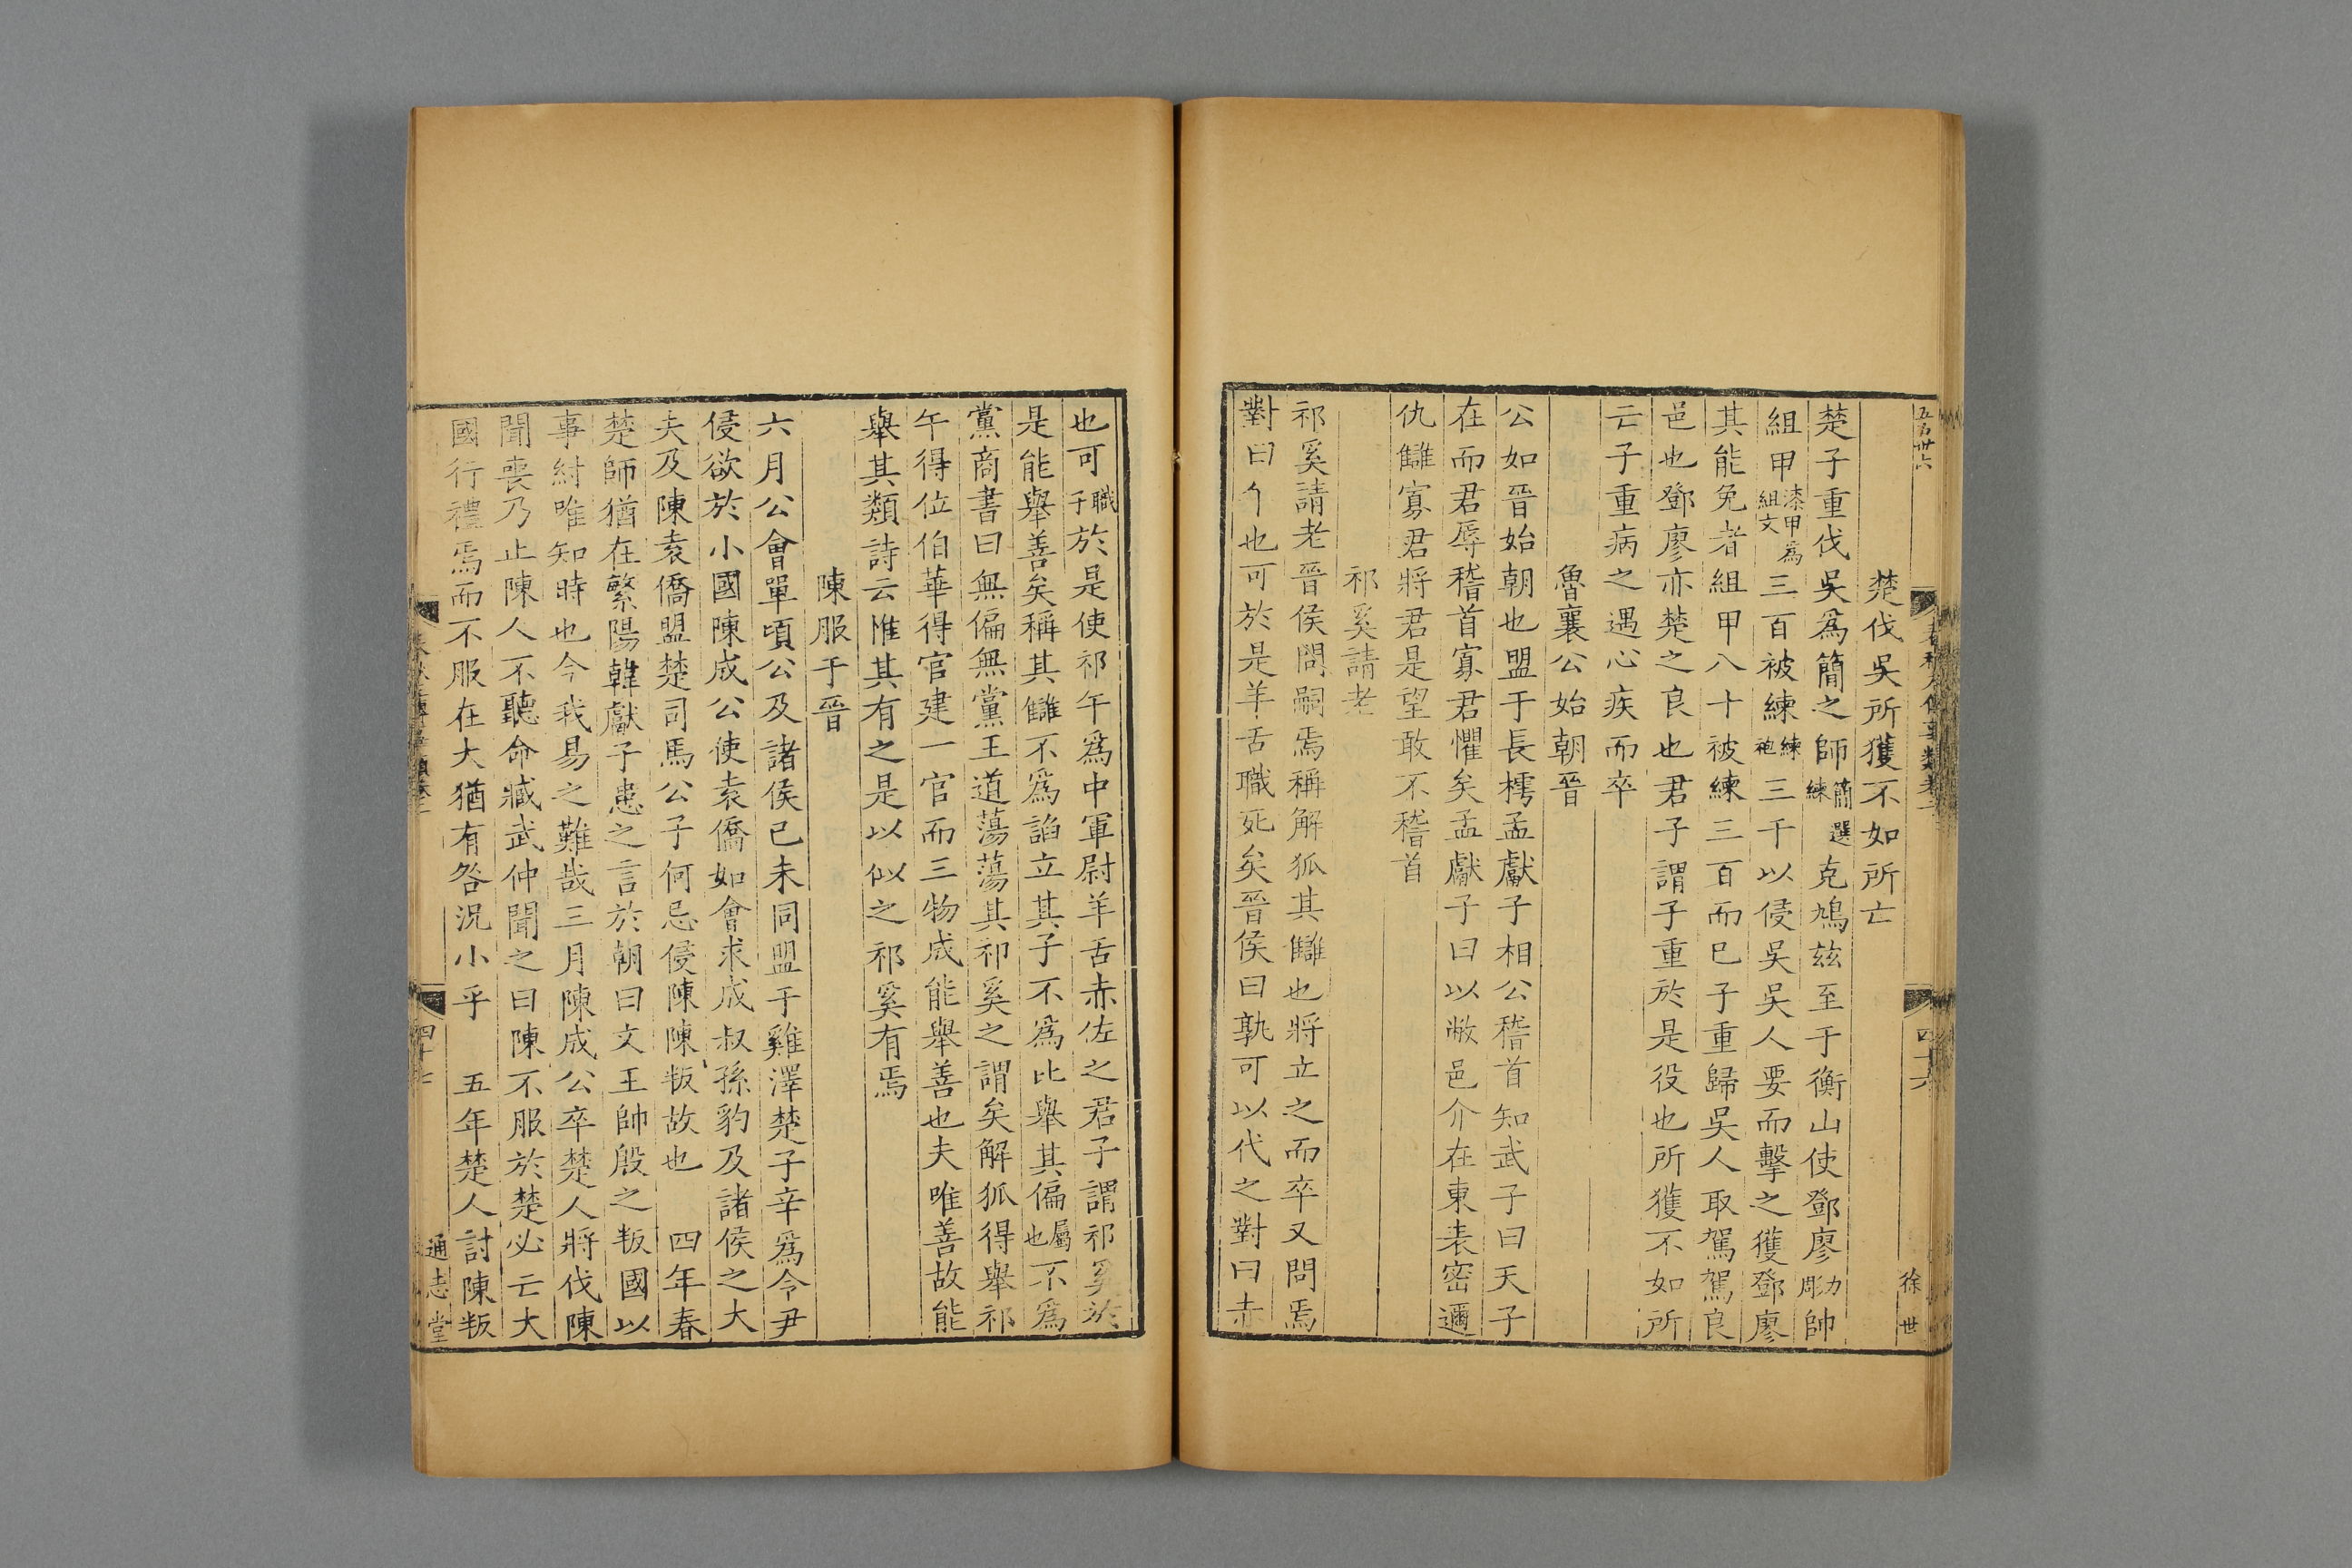 楚伐吳所獲不如所亡
楚子重伐吳爲簡之師簡選練克鳩茲至于衡山使鄧廖力彫帥
組甲漆甲爲組文三百被練練袍三千以侵吳吳人要而擊之獲鄧廖
其能免者組甲八十被練三百而巳子重歸吳人取駕駕良
邑也鄧廖亦楚之良也君子謂子重於是役也所獲不如所
亡子重病之遇心疾而卒
魯襄公始朝晉
公如晉始朝也盟于長樗孟獻子相公稽首知武子曰天子
在而君辱稽首寡君懼矣孟獻子曰以敝邑介在東表密邇
仇讎寡君將君是望敢不稽首
祁奚請老
祁奚請老晉侯問嗣焉稱解狐其讎也將立之而卒又問焉
對曰午也可於是羊舌職死矣晉侯曰孰可以代之對曰赤
也可職子於是使祁午爲中軍尉羊舌赤佐之君子謂祁奚於
是能舉善矣稱其讎不爲諂立其子不爲比舉其偏屬也不爲
黨商書曰無偏無黨王道蕩蕩其祁奚之謂矣解狐得舉祁
午得位伯華得官建一官而三物成能舉善也夫唯善故能
舉其類詩云惟其有之是以似之祁奚有焉
陳服于晉
六月公會單頃公及諸侯己未同盟于雞澤楚子辛爲令尹
侵欲於小國陳成公使袁僑如會求成叔孫豹及諸侯之大
夫及陳袁僑盟楚司馬公子何忌侵陳陳叛故也　四年春
楚師猶在繁陽韓獻子患之言於朝曰文王帥殷之叛國以
事紂唯知時也今我易之難哉三月陳成公卒楚人將伐陳
聞喪乃止陳人不聽命臧武仲聞之曰陳不服於楚必亡大
國行禮焉而不服在大猶有咎況小乎　五年楚人討陳叛
四十七
通志堂